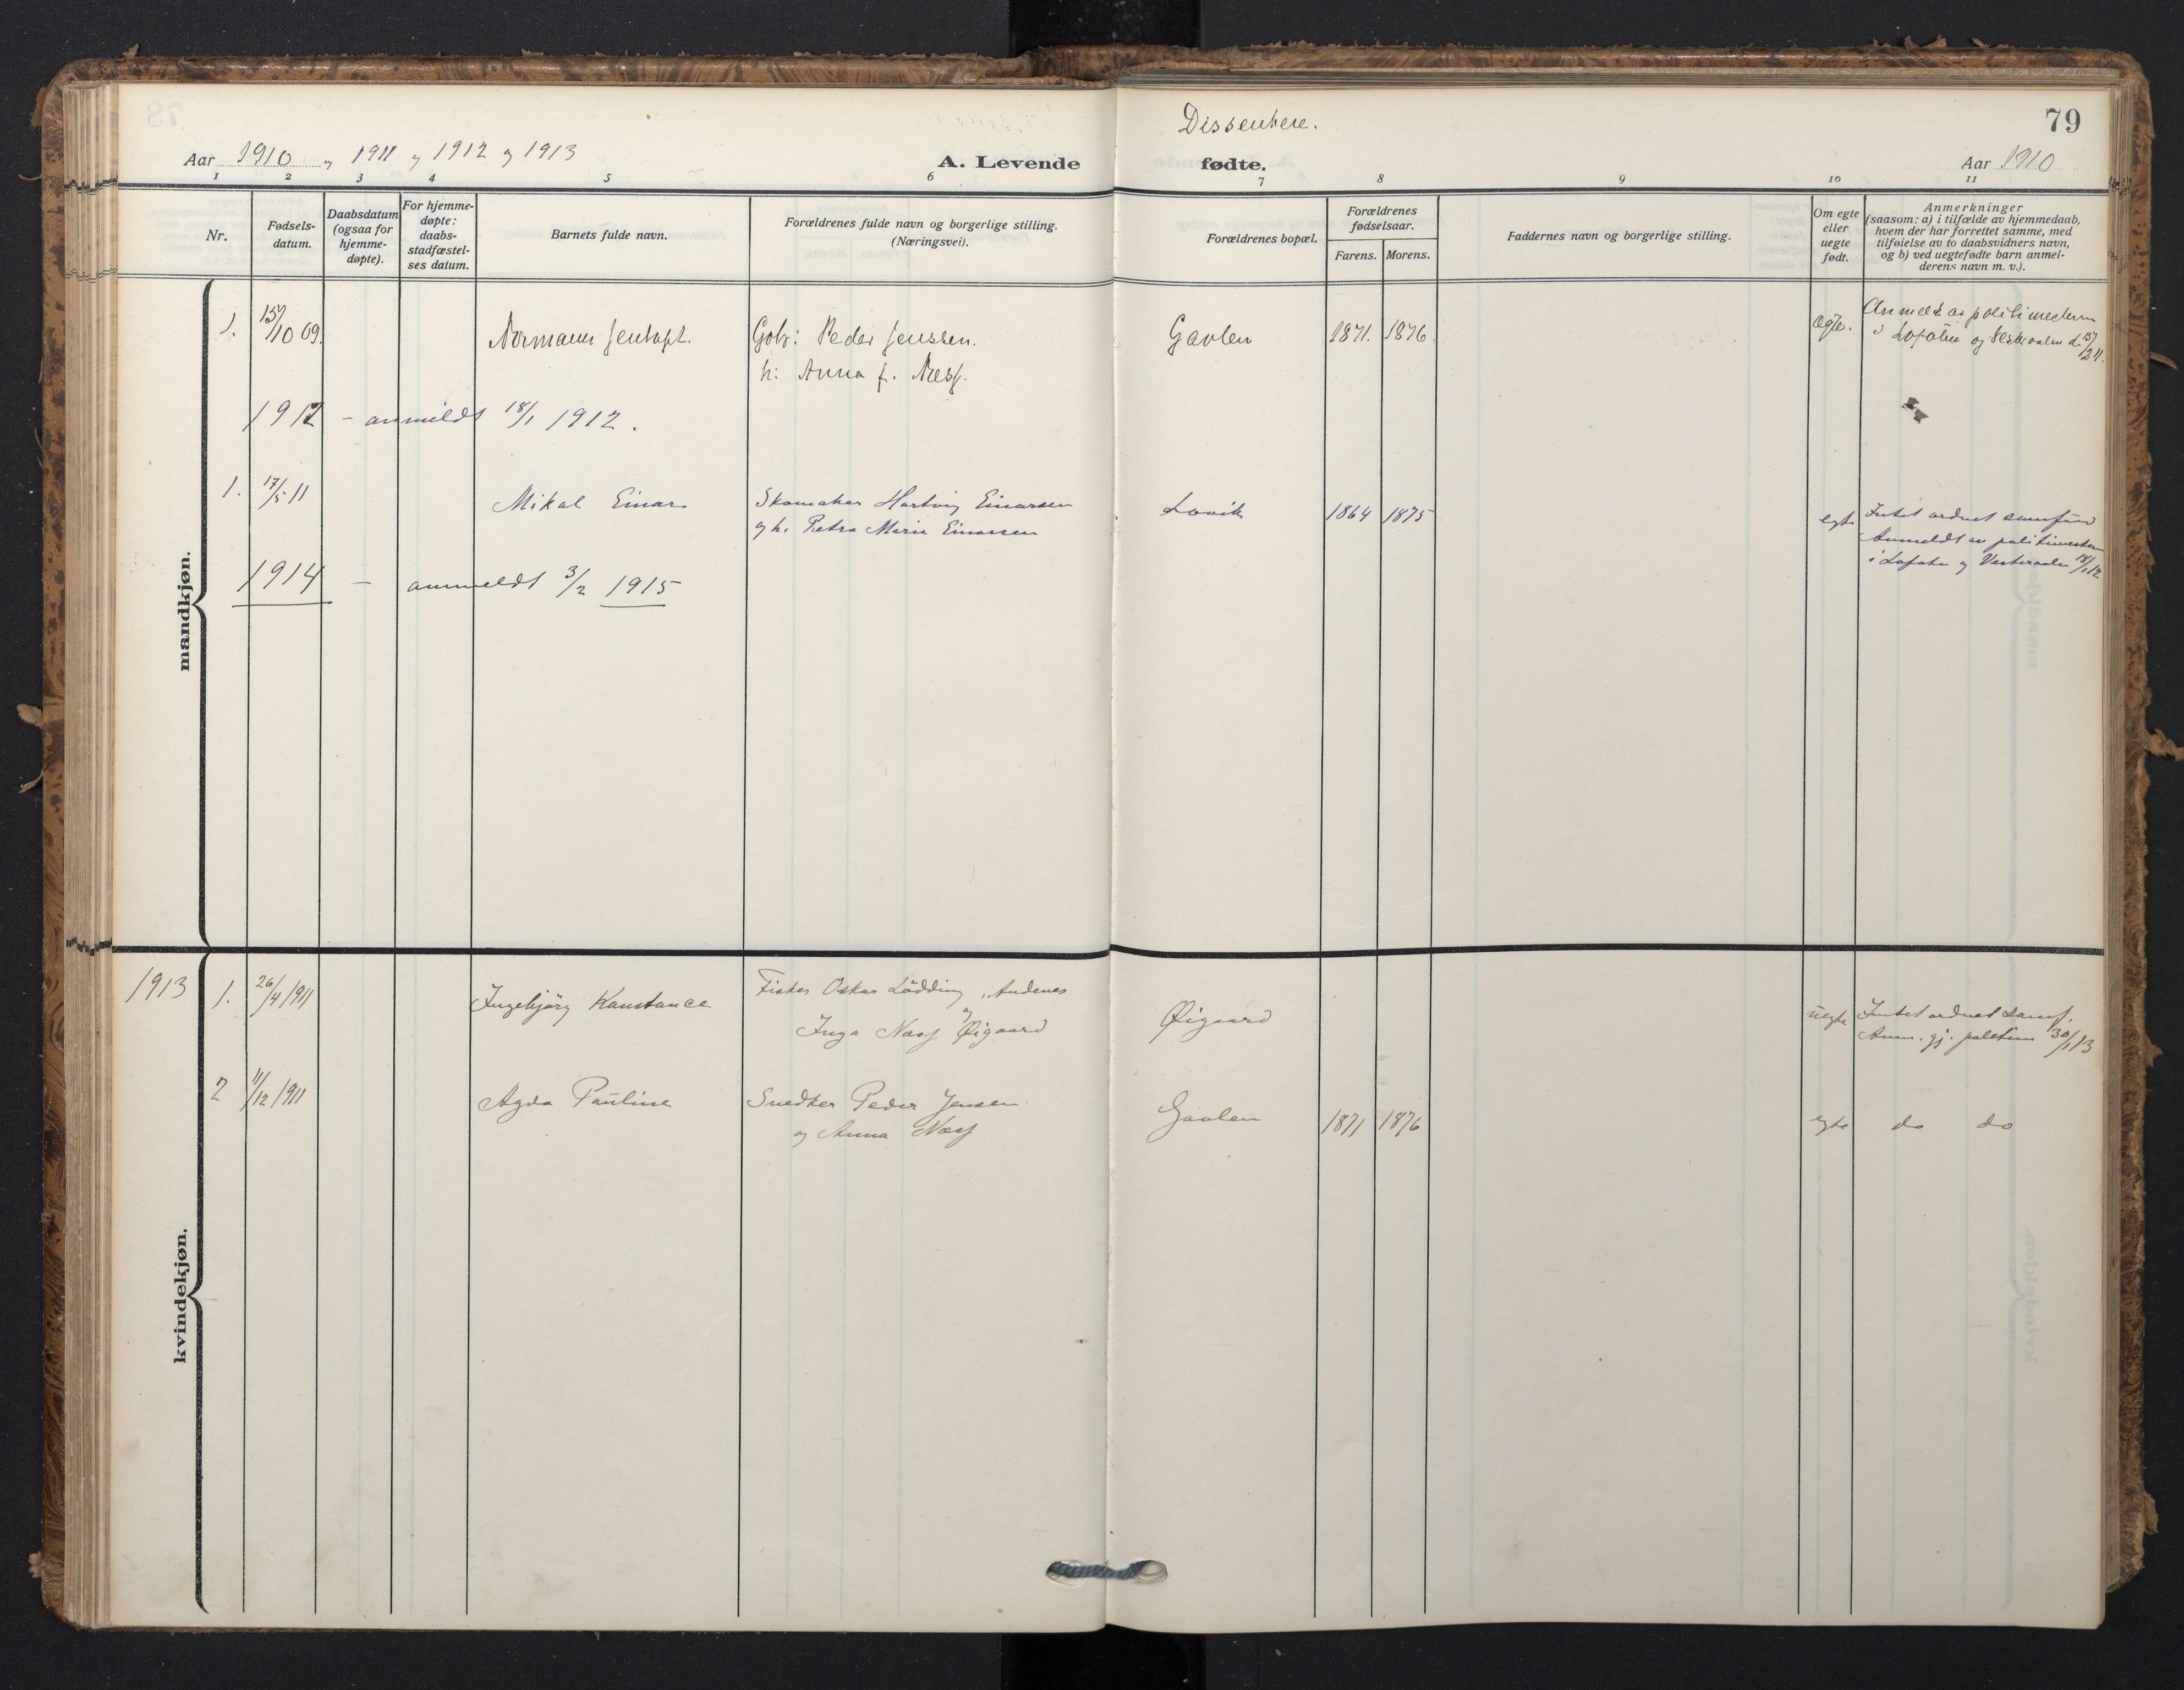 Dissentere.
79
Aar 1910 og 1911 og 1912 og 1913
A. Levende fødte.
Aar 1910
1 2 3 4 5 6 7 8 9 10 11
Nr.
Fødsels-
datum.
Daabsdatum
(ogsaa for
hjemme-
døpte).
For hjemme-
døpte:
daabs-
stadfæstel-
ses datum.
Barnets fulde navn.
Forældrenes fulde navn og borgerlige stilling.
(Næringsvei).
Forældrenes bopæl.
Forældrenes
fødselsaar.
Farens. Morens.
Faddernes navn og borgerlige stilling.
Om egte
eller
uegte
født.
Anmerkninger
(saasom: a) i tilfælde av hjemmedaab,
hvem der har forrettet samme, med
tilføielse av to daabsvidners navn,
og b) ved uegtefødte barn anmel-
derens navn m. v.).
mandkjøn.
1. 15/10 09. Normann Jentoft. Gbr: Peder Jenssen. Gavlen 1871. 1876. ægte. Anmeldt av politimesteren
h: Anna f. Næss. i Lofoten og Vesteraalen d. 15/2 11.
1912 – anmeldt 18/1 1912.
1. 17/5 11 Mikal Einar Skomaker Hartvig Einarsen Lovik 1864 1875 egte Intet ordnet samfund
og h. Petra Marie Einarsen Anmeldt av politimesteren
i Lofoten og Vesteraalen 18/1 12
1914 – anmeldt 3/2 1915
kvindekjøn.
1913 1. 26/4 1911 Ingebjørg Konstance Fisker Oskar Lødding, Andenes
og Inga Næss Øigaard Øigaard uegte Intet ordnet samf.
Anm. gj. politim 30/1 13
2 11/12 1911 Agda Pauline Snedker Peder Jensen Gavlen 1871 1876 egte do do
og Anna Næss